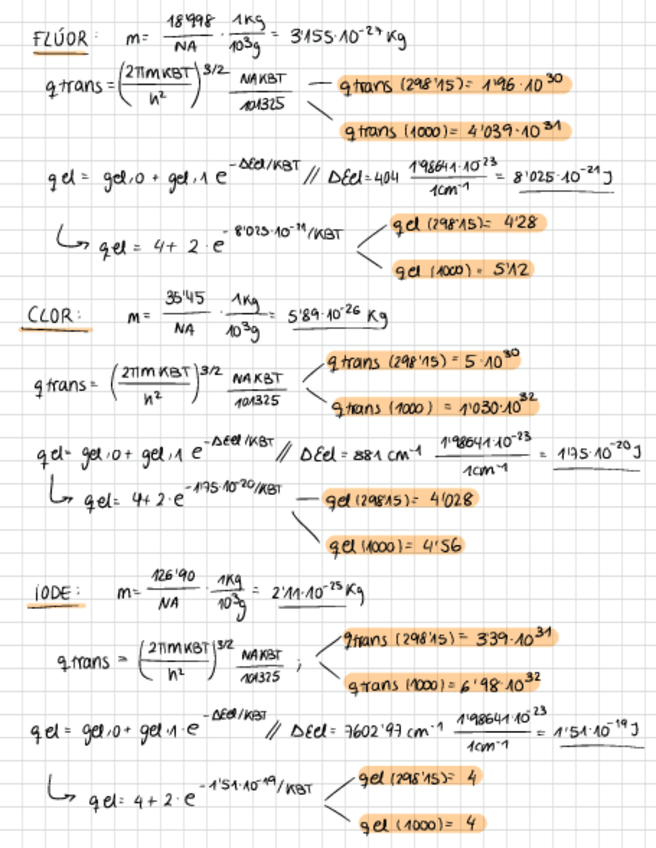 FLÚOR: m = 18'998/NA · 1Kg/10³g = 3'155·10⁻²⁷ Kg
qtrans = (2πmKBT/h²)^3/2 NAKBT/101325 — qtrans (298'15) = 1'96·10³⁰
qtrans (1000) = 4'039·10³¹
qel = gel,0 + gel,1 e^-ΔEel/KBT // ΔEel = 404 1'98641·10²³/1cm⁻¹ = 8'025·10⁻²¹ J
↳ qel = 4 + 2·e^-8'025·10⁻²¹/KBT qel (298'15) = 4'28
qel (1000) = 5'12
CLOR: m = 35'45/NA · 1Kg/10³g = 5'89·10⁻²⁶ Kg
qtrans (298'15) = 5·10³⁰
qtrans = (2πmKBT/h²)^3/2 NAKBT/101325
qtrans (1000) = 1'030·10³²
qel = gel,0 + gel,1 e^-ΔEel/KBT // ΔEel = 881 cm⁻¹ 1'98641·10⁻²³/1cm⁻¹ = 1'75·10⁻²⁰ J
↳ qel = 4 + 2·e^-1'75·10⁻²⁰/KBT — qel (298'15) = 4'028
qel (1000) = 4'56
IODE: m = 126'90/NA · 1Kg/10³g = 2'11·10⁻²⁵ Kg
qtrans (298'15) = 3'39·10³¹
qtrans = (2πmKBT/h²)^3/2 NAKBT/101325 ;
qtrans (1000) = 6'98·10³²
qel = gel,0 + gel·1·e^-ΔEel/KBT // ΔEel = 7602'97 cm⁻¹ 1'98641·10⁻²³/1cm⁻¹ = 1'51·10⁻¹⁹ J
↳ qel = 4 + 2·e^-1'51·10⁻¹⁹/KBT qel (298'15) = 4
qel (1000) = 4